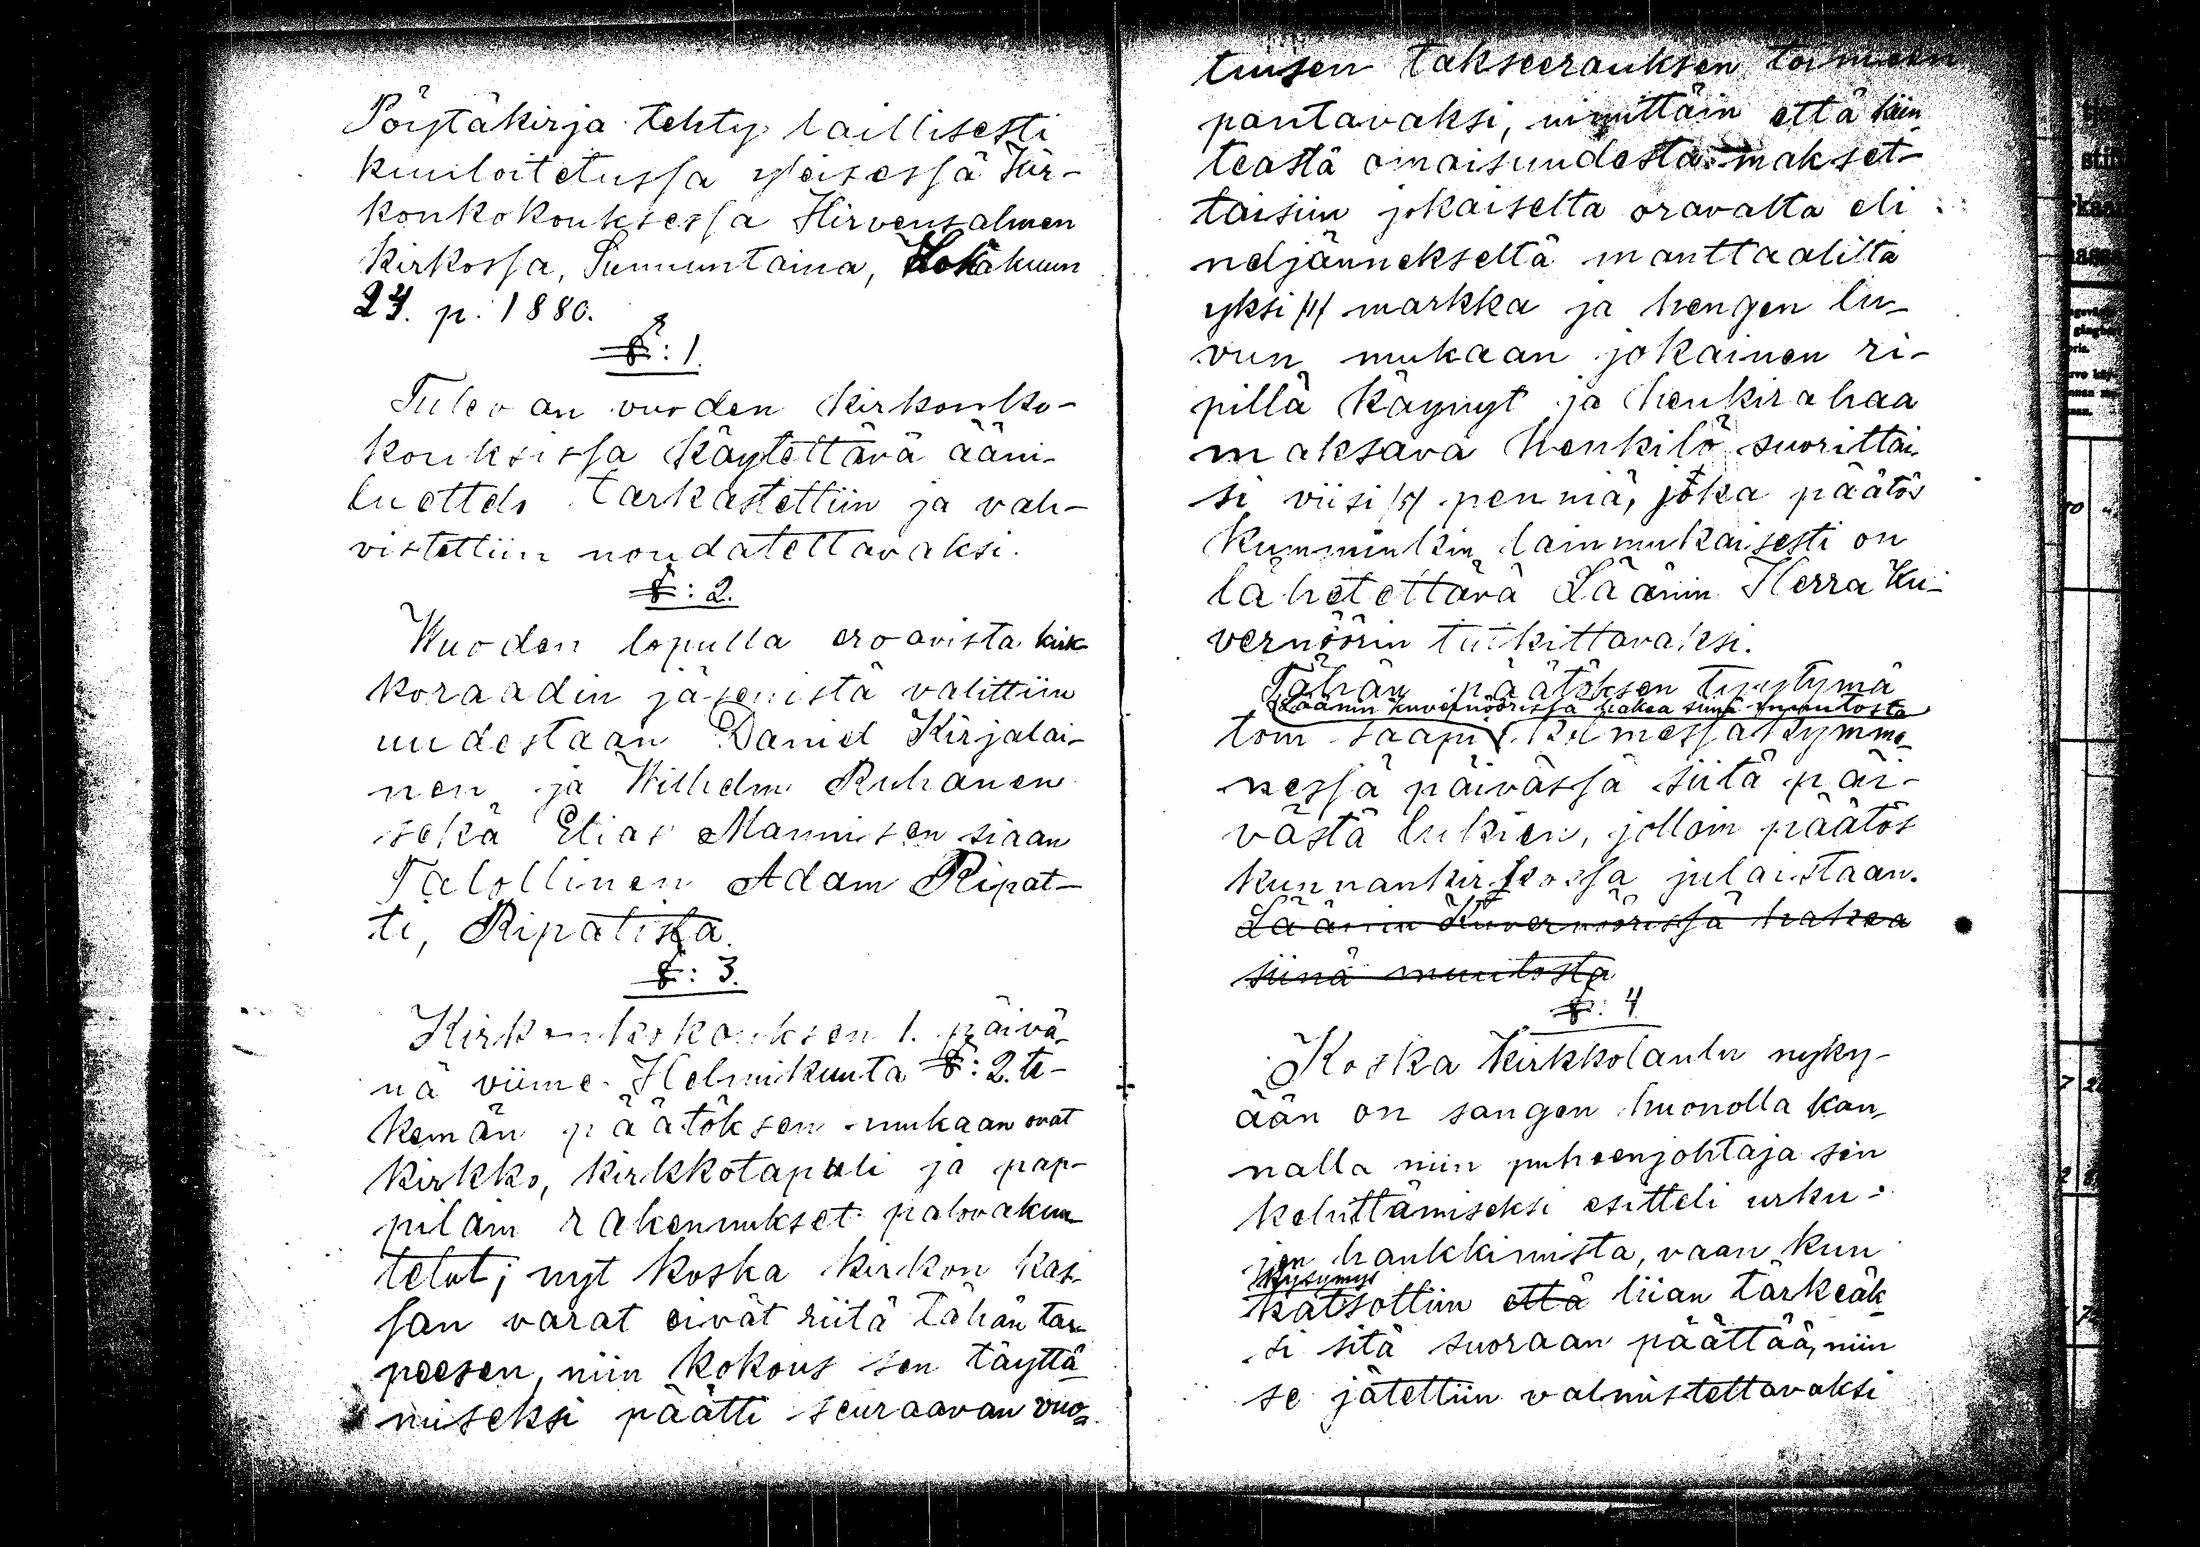 Pöytäkirja tehty laillisesti
kuuloitetussa yleisessä Kir-
konkokouksessa Hirvensalmen
kirkossa, Sunnuntaina, Lokakuun
24. p: 1880.
§: 1.
Tulevan vuoden kirkonko-
kouksissa käytettävä ääni-
luettelo tarkastettiin ja vah-
vistettiin noudatettavaksi.
§: 2.
Wuoden lopulla eroavista kirk-
koraadin jäsenistä valittiin
uudestaan Daniel Kirjalai-
nen ja Wilhelm Ruhanen
sekä Elias Mannisen siaan
Talollinen Adam Ripat-
ti, Ripatista.
§: 3.
Kirkonkokouksen 1. päivä-
nä viime Helmikuuta §: 2. te-
kemän päätöksen mukaan ovat
kirkko, kirkkotapuli ja pap-
pilain rakennukset palovakuu-
tetut; nyt koska kirkon kas-
san varat eivät riitä tähän tar-
peesen, niin kokous sen täyttä-
miseksi päätti seuraavan vuo-
tuisen takseerauksen toimeen
pantavaksi, nimittäin että kiin-
teästä omaisuudesta makset-
taisiin jokaiselta oravalta eli
neljännekseltä manttaalilta
yksi /1/ markka ja hengen lu-
vun mukaan jokainen ri-
pillä käynyt ja henkirahaa
maksava henkilö suorittai-
si viisi /5/ penniä, joka päätös
kumminkin lainmukaisesti on
lähetettävä Läänin Herra Ku-
vernöörin tutkittavaksi.
Tähän päätöksen tyystymä
Läänin kuvernöörissä hakea siinä muutosta
töin saapi kolmessakymme-
nessä päivässä siitä päi-
västä lukien, jolloin päätös
kunnankirkossa julaistaan.
Läänin Kuvernöörissä hakea
siinä muutosta
§: 4
Koska kirkkolaulu nyky-
ään on sangen huonolla kan-
nalla niin puheenjohtaja sen
kehittämiseksi esitteli urku-
jen hankkimista, vaan kun
kysymys
katsottiin että liian tärkeäk-
si sitä suoraan päättää, niin
se jätettiin valmistettavaksi